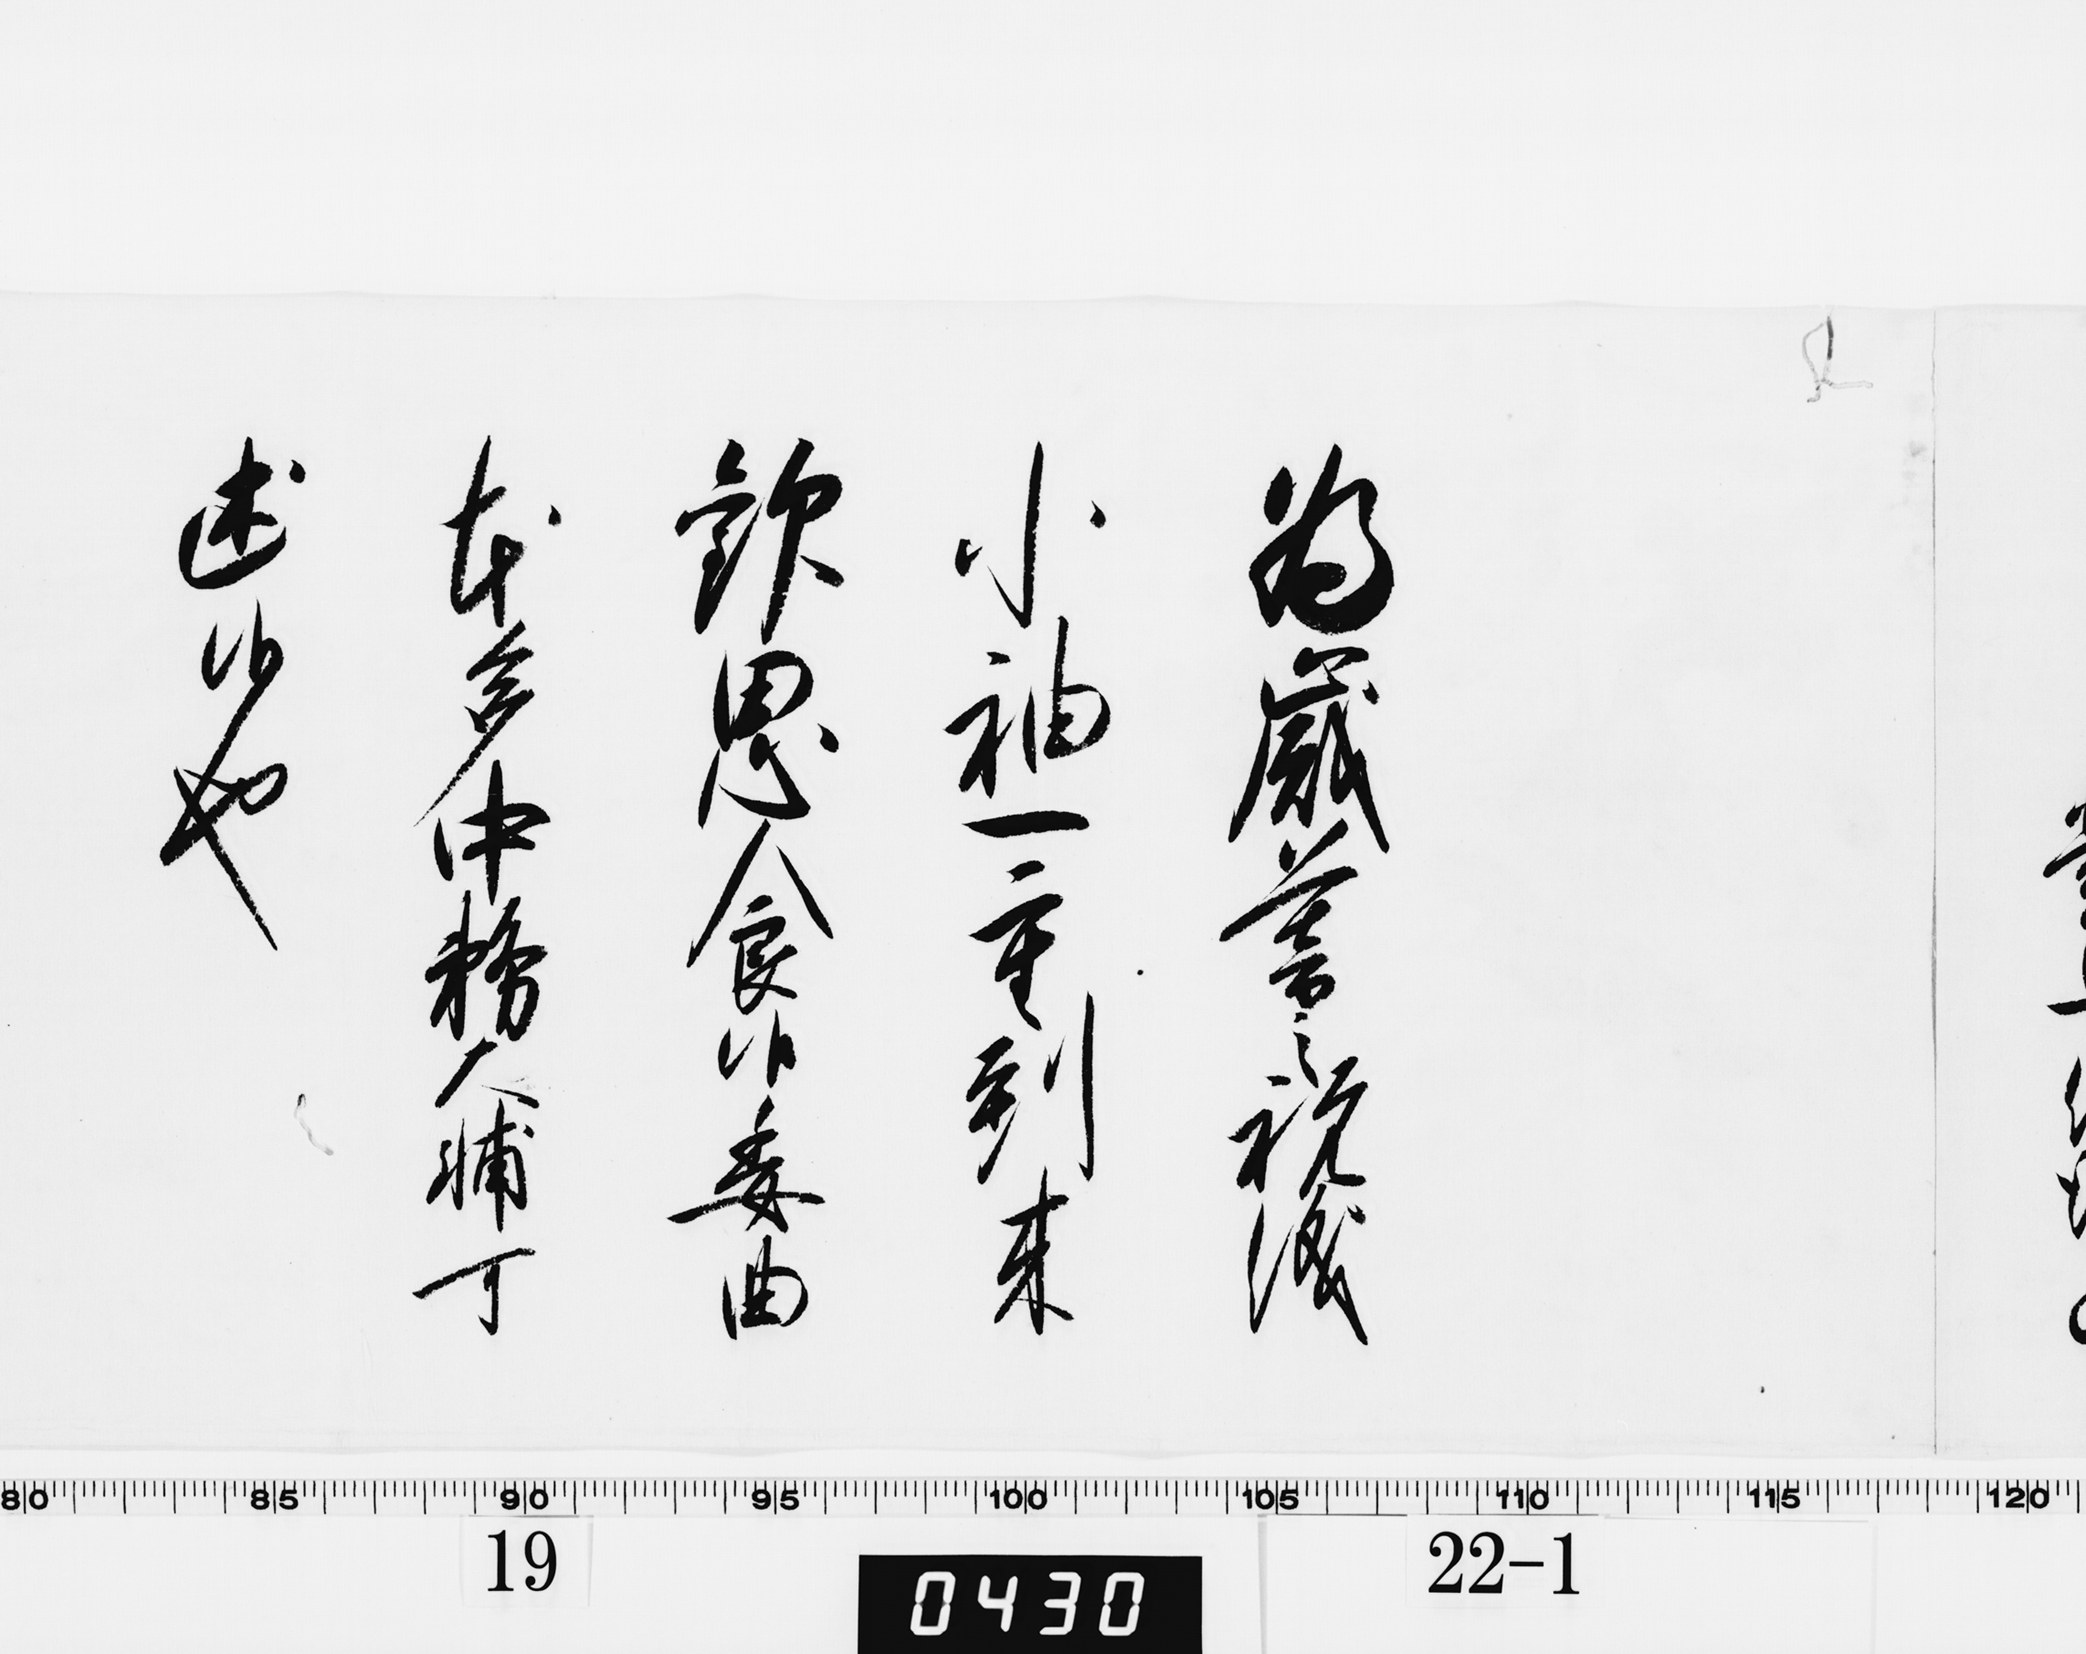 為歳暮之祝儀
小袖一重到来
歓思食候委曲
本多中務大輔可
述候也
80 85 90 95 100 105 110 115 120
19
22-1
0430